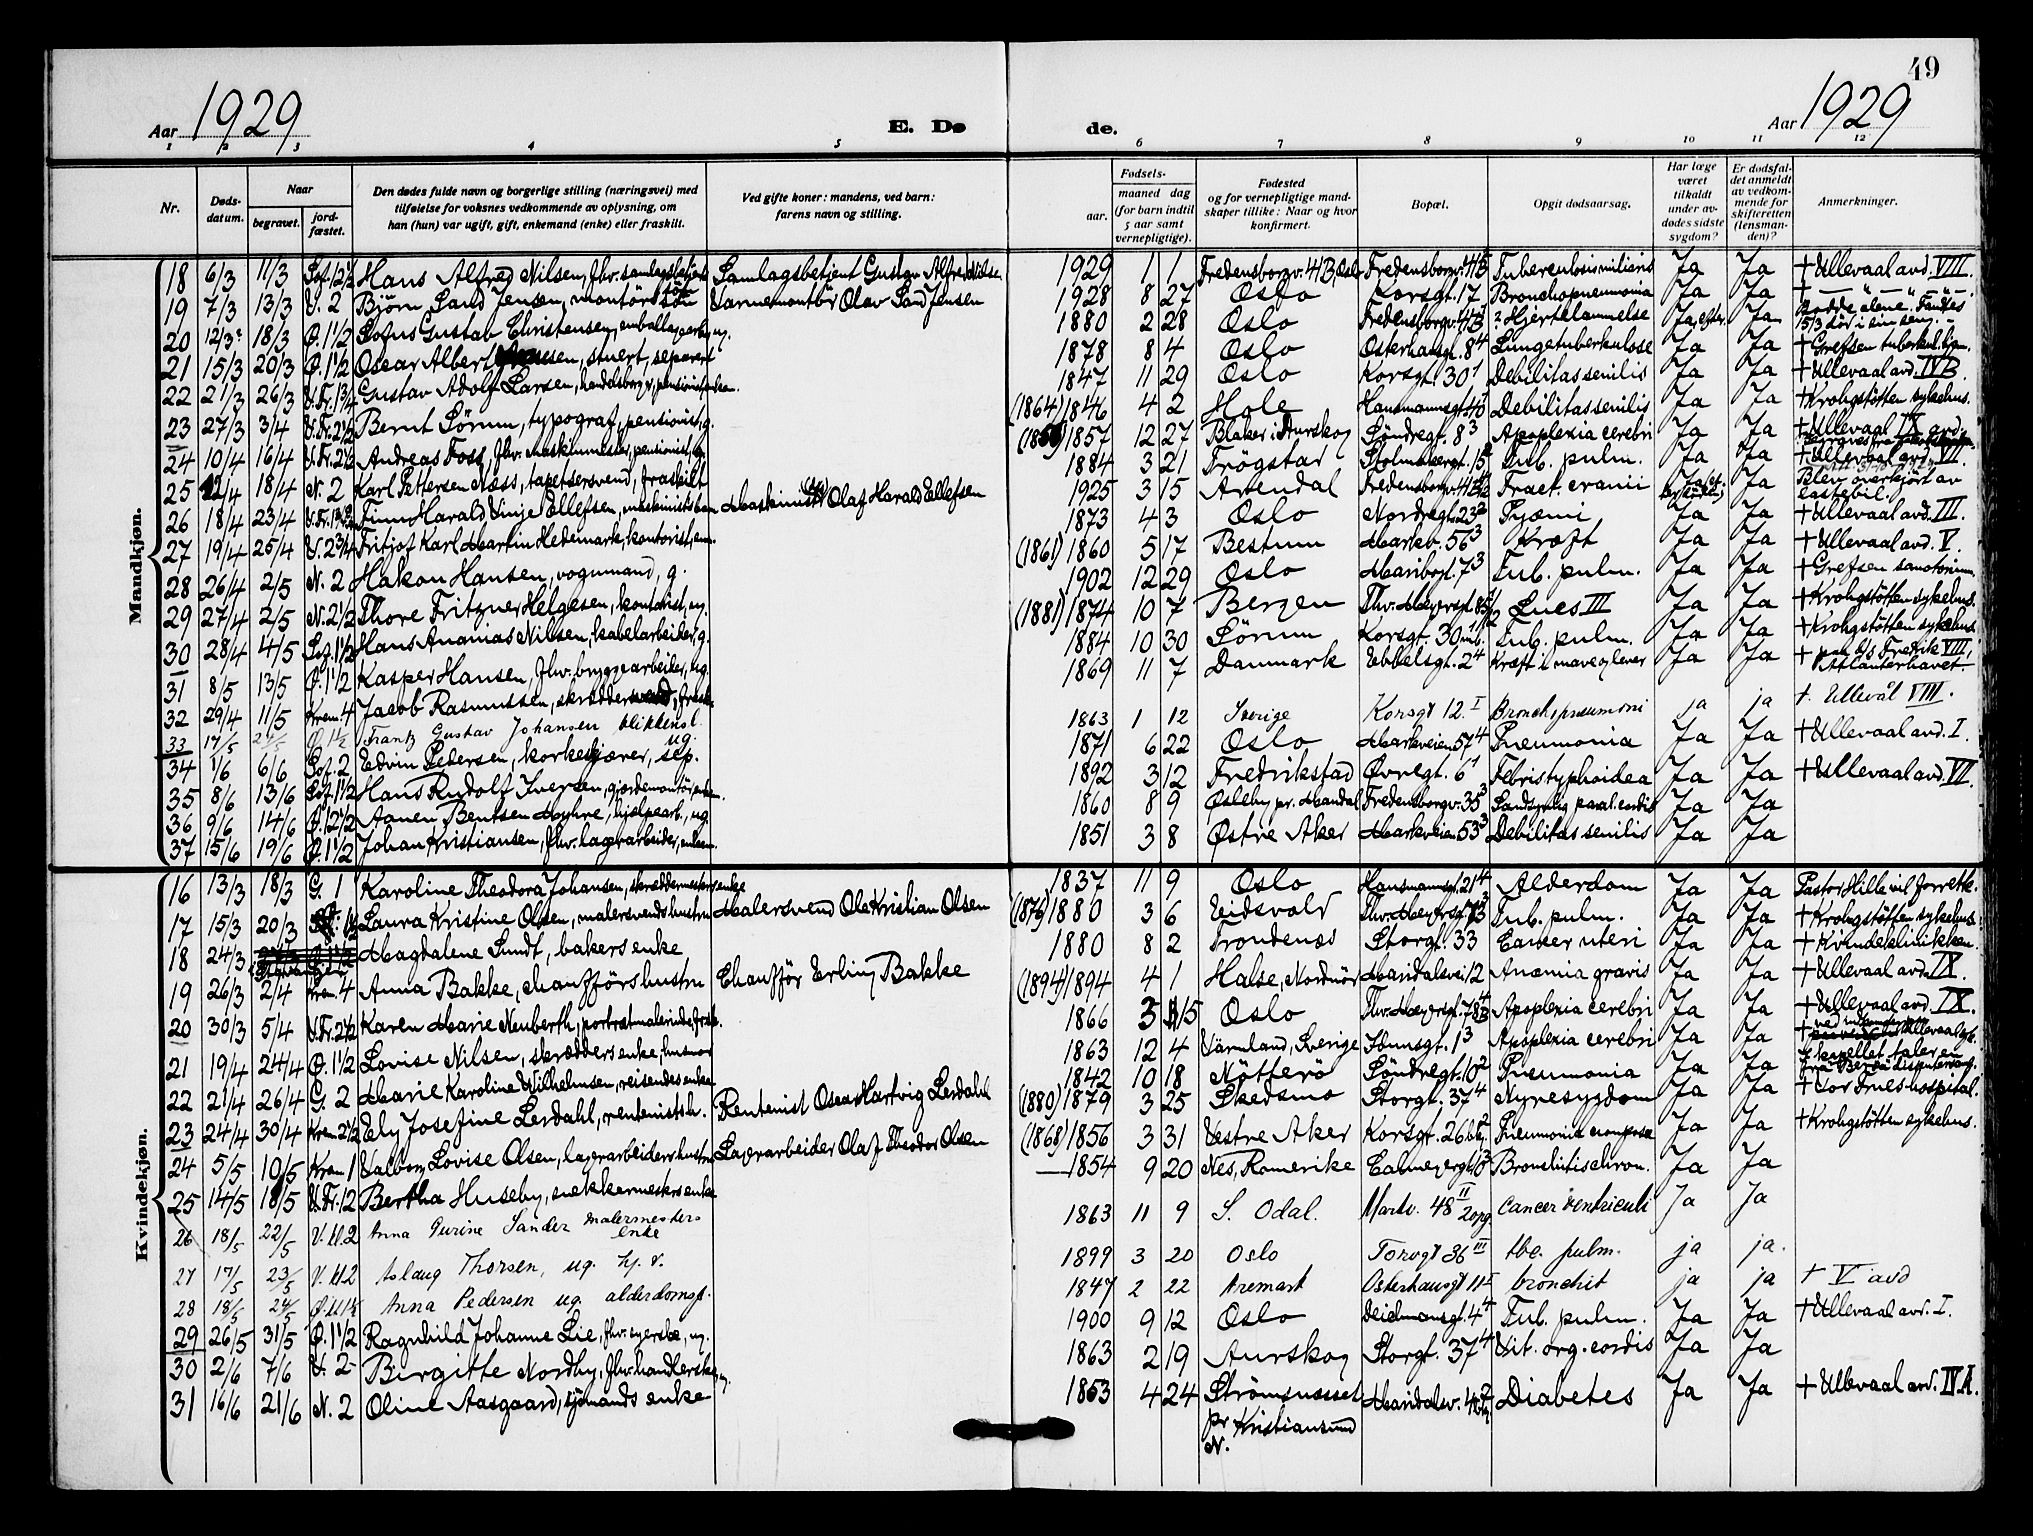 49
Aar 1929
E. Dø
de.
Aar 1929
1 2 3 4 5 6 7 8 9 10 11 12
Nr.
Døds-
datum.
Naar
begravet.
jord-
fæstet.
Den dødes fulde navn og borgerlige stilling (næringsvei) med
tilføielse for voksnes vedkommende av oplysning, om
han (hun) var ugift, gift, enkemand (enke) eller fraskilt.
Ved gifte koner: mandens, ved barn:
farens navn og stilling.
Fødsels-
aar.
maaned dag
(for barn indtil
5 aar samt
vernepligtige).
Fødested
og for vernepligtige mand-
skaper tillike: Naar og hvor
konfirmert.
Bopæl.
Opgit dødsaarsag.
Har læge
været
tilkaldt
under av-
dødes sidste
sygdom?
Er dødsfal-
det anmeldt
av vedkom-
mende for
skifteretten
(lensman-
den)?
Anmerkninger.
Mandkjøn.
18 6/3 11/3 Sof. 12½ Hans Alfred Nilsen, fhv. samlagsbetjents Samlagsbetjent Gustav Alfred Nilsen 1929 1 1 Fredensborgv. 41B, Oslo Fredensborgv. 41B Tuberculosis miliaris Ja Ja + Ullevaal avd. VIII.
19 7/3 13/3 V. 2 Bjørn Sand Jensen, montörs sön Varmemontör Olav Sand Jensen 1928 8 27 Oslo Korsgt. 17 Bronchopneumonia Ja Ja + — " — " —
20 12/3 18/3 Ø. 1½ Sofus Gustab Christensen, emballagearb., ug. 1880 2 28 Oslo Fredensborgv. 41B ? Hjerteklammelse Ja, efter. Ja Bodde alene. Fandtes 15/3 död i sin seng.
21 15/3 20/3 Ø. 1½ Oscar Albert, stuert, separert 1878 8 4 Oslo Osterhausgt. 8⁴ Lungetuberkulose Ja Ja + Grefsen tuberkul. hjem.
22 21/3 26/3 V. Fr. 1¾ Gustav Adolf Larsen, handelsborger, pensionist, enkem. 1847 11 29 Oslo Korsgt. 30¹ Debilitas senilis Ja Ja + Ullevaal avd. IVB.
23 27/3 3/4 V. Fr. 2½ Bernt Sörum, typograf, pensionist, g. (1864) 1846 4 2 Hole Hausmannsgt. 40 Debilitas senilis Ja Ja + Krohgstötten sykehus.
24 10/4 16/4 V. Fr. 2½ Andreas Foss, fhv. maskinmester, pensionist, g. 1857 12 27 Blaker i Aurskog Söndregt. 8³ Apoplexia cerebri Ja Ja + Ullevaal IX avd.
25 12/4 18/4 N. 2 Karl Pettersen Næss, tapetsersvend, fraskilt 1884 3 21 Trögstad Stolmakergt. 15 Tub. pulm. Ja Ja + Ullevaal avd. VII.
26 18/4 23/4 V. Fr. Finn Harald Vinje Ellefsen, maskinists barn Maskinist Olaf Harald Ellefsen 1925 3 15 Arendal Fredensborgv. 41B Fract. cranii Ja Ja Blev overkjört av lastebil.
27 19/4 25/4 V. 2¾ Fritjof Karl Martin Hedemark, kontorist, enm. 1873 4 3 Oslo Nordregt. 23² Pyæmi Ja Ja + Ullevaal avd. III.
28 26/4 2/5 N. 2 Hakon Hansen, vognmand, g. (1861) 1860 5 17 Bestum Markv. 56³ Kræft Ja Ja + Ullevaal avd. V.
29 27/4 2/5 N. 2½ Thore Fritzner Helgesen, kontorist, ug. 1902 12 29 Oslo Maribogt. 7³ Tub. pulm. Ja Ja + Grefsen sanatorium.
30 28/4 4/5 Sof. 1½ Hans Ananias Nilsen, kabelarbeider, g. (1881) 1874 10 7 Bergen Thv. Meyersgt. 85 Lues III Ja Ja + Krohgstötten sykehus.
31 8/5 13/5 Ø. 1½ Kasper Hansen, fhv. bryggearbeider, ug. 1884 10 30 Sörum Korsgt. 30 Tub. pulm. Ja Ja + Krohgstötten sykehus
32 29/4 11/5 Krem. 4 Jacob Rasmussen, skræddersvend, frask. 1869 11 7 Danmark Ebbelsgt. 2⁴ Kræft i mave og lever Ja Ja + paa D/S Fredrik VIII, Atlanterhavet
33 17/5 Ø 1½ Frantz Gustav Johansen blikkensl. ug. 1863 1 12 Sverige Korsgt 12. I Bronch. pneumoni ja ja + Ullevål VIII.
34 1/6 6/6 Sof. 2 Edvin Pedersen, korkeskjærer, sep. 1871 6 22 Oslo Markveien 57⁴ Pneumonia Ja Ja + Ullevaal avd. I.
35 8/6 13/6 Sof. 1½ Hans Rudolf Iversen, gjerdemontör, enkem. 1892 3 12 Fredrikstad Øvregt. 6¹ Febris typhoidea Ja Ja + Ullevaal avd. VII.
36 9/6 14/6 Ø. 12½ Aanen Bentsen Myhre, hjelpearb., ug. 1860 8 9 Øsleby pr. Mandal Fredensborgv. 35³ Sandsynlig paral. cordis Ja Ja
37 15/6 19/6 Ø. 1½ Johan Kristiansen, fhv. lagerarbeider, enkem. 1851 3 8 Østre Aker Markveien 53³ Debilitas senilis Ja Ja
Kvindekjøn.
16 13/3 18/3 G. 1 Karoline Theodora Johansen, skræddermesters enke 1837 11 9 Oslo Hausmannsgt. 21⁴ Alderdom Ja Ja Pastor Hille vil forrette.
17 15/3 20/3 Laura Kristine Olsen, malersvends hustru Malersvend Ole Kristian Olsen (1876) 1880 3 6 Eidsvold Thv. Meyersgt. Tub. pulm. Ja Ja + Krohgstötten sykehus.
18 24/3 Magdalene Sundt, bakers enke 1880 8 2 Trondenæs Storgt. 33 Cancer uteri Ja Ja + Kvindeklinikken.
19 26/3 2/4 Krem. 4 Anna Bakke, chauffförs hustru Chaufför Erling Bakke (1894) 1894 4 1 Halse, Nordmör Maridalsvei 12 Anæmia gravis Ja Ja + Ullevaal avd. IX.
20 30/3 5/4 V. Fr. 2½ Karen Marie Neuberth, portrætmalerinde, frask. 1866 3 15 Oslo Thv. Meyersgt. 78 Apoplexia cerebri Ja Ja + Ullevaal avd. IX.
21 19/4 24/4 Ø. 1½ Lovise Nilsen, skrædders enke, husmor 1863 12 4 Värmland, Sverige Idunsgt. 1³ Apoplexia cerebri Ja Ja
22 21/4 26/4 G. 2 Marie Karoline Wilhelmsen, reisendes enke 1842 10 18 Nötterö Söndregt. 10² Pneumonia Ja Ja I kapellet taler en
23 24/4 30/4 Krem. 2½ Ely Josefine Lerdahl, rentenists h. Rentenist Oscar Hartvig Lerdahl (1880) 1879 3 25 Skedsmo Storgt. 37⁴ Nyresygdom Ja Ja + Vor Frues hospital.
24 5/5 10/5 Krem. 1 Valborg Lovise Olsen, lagerarbeiders hustru Lagerarbeider Olaf Theodor Olsen (1868) 1856 3 31 Vestre Aker Korsgt. 26 Pneumonia crouposa Ja Ja + Krohgstötten sykehus.
25 14/5 18/5 V. Fr. 12 Bertha Huseby, snekkermesters enke — 1854 9 20 Nes, Romerike Calmeyergt. Bronchitis chron. Ja Ja
26 18/5 22/5 V. kl. 2 Anna Gurine Sander malermesters enke 1863 11 9 S. Odal. Markv. 48 II 2opg Cancer ventriculi Ja Ja
27 17/5 23/5 V. kl 2 Aslaug Thorsen, ug. hj. v. 1899 3 20 Oslo Torvgt 36 III tbc. pulm. ja ja.
28 18/5 24/5 Ø. kl 1½ Anna Pedersen ug. alderdomsp. 1847 2 22 Aremark Osterhausgt 11 bronchit ja ja + V avd
29 26/5 31/5 Ø. 1½ Ragnhild Johanne Lie, fhv. syerske, ug. 1900 9 12 Oslo Deichmansgt. 4⁴ Tub. pulm. Ja Ja + Ullevaal avd. I.
30 2/6 7/6 V. 2 Birgitte Nordby, fhv. handlerske, ug. 1863 2 19 Aurskog Storgt. 37⁴ Vit. org. cordis Ja Ja
31 16/6 21/6 N. 2 Oline Aasgaard, sjömands enke 1853 4 24 Strömsnesset pr. Kristiansund N. Maridalsv. Diabetes Ja Ja + Ullevaal avd. IVA.